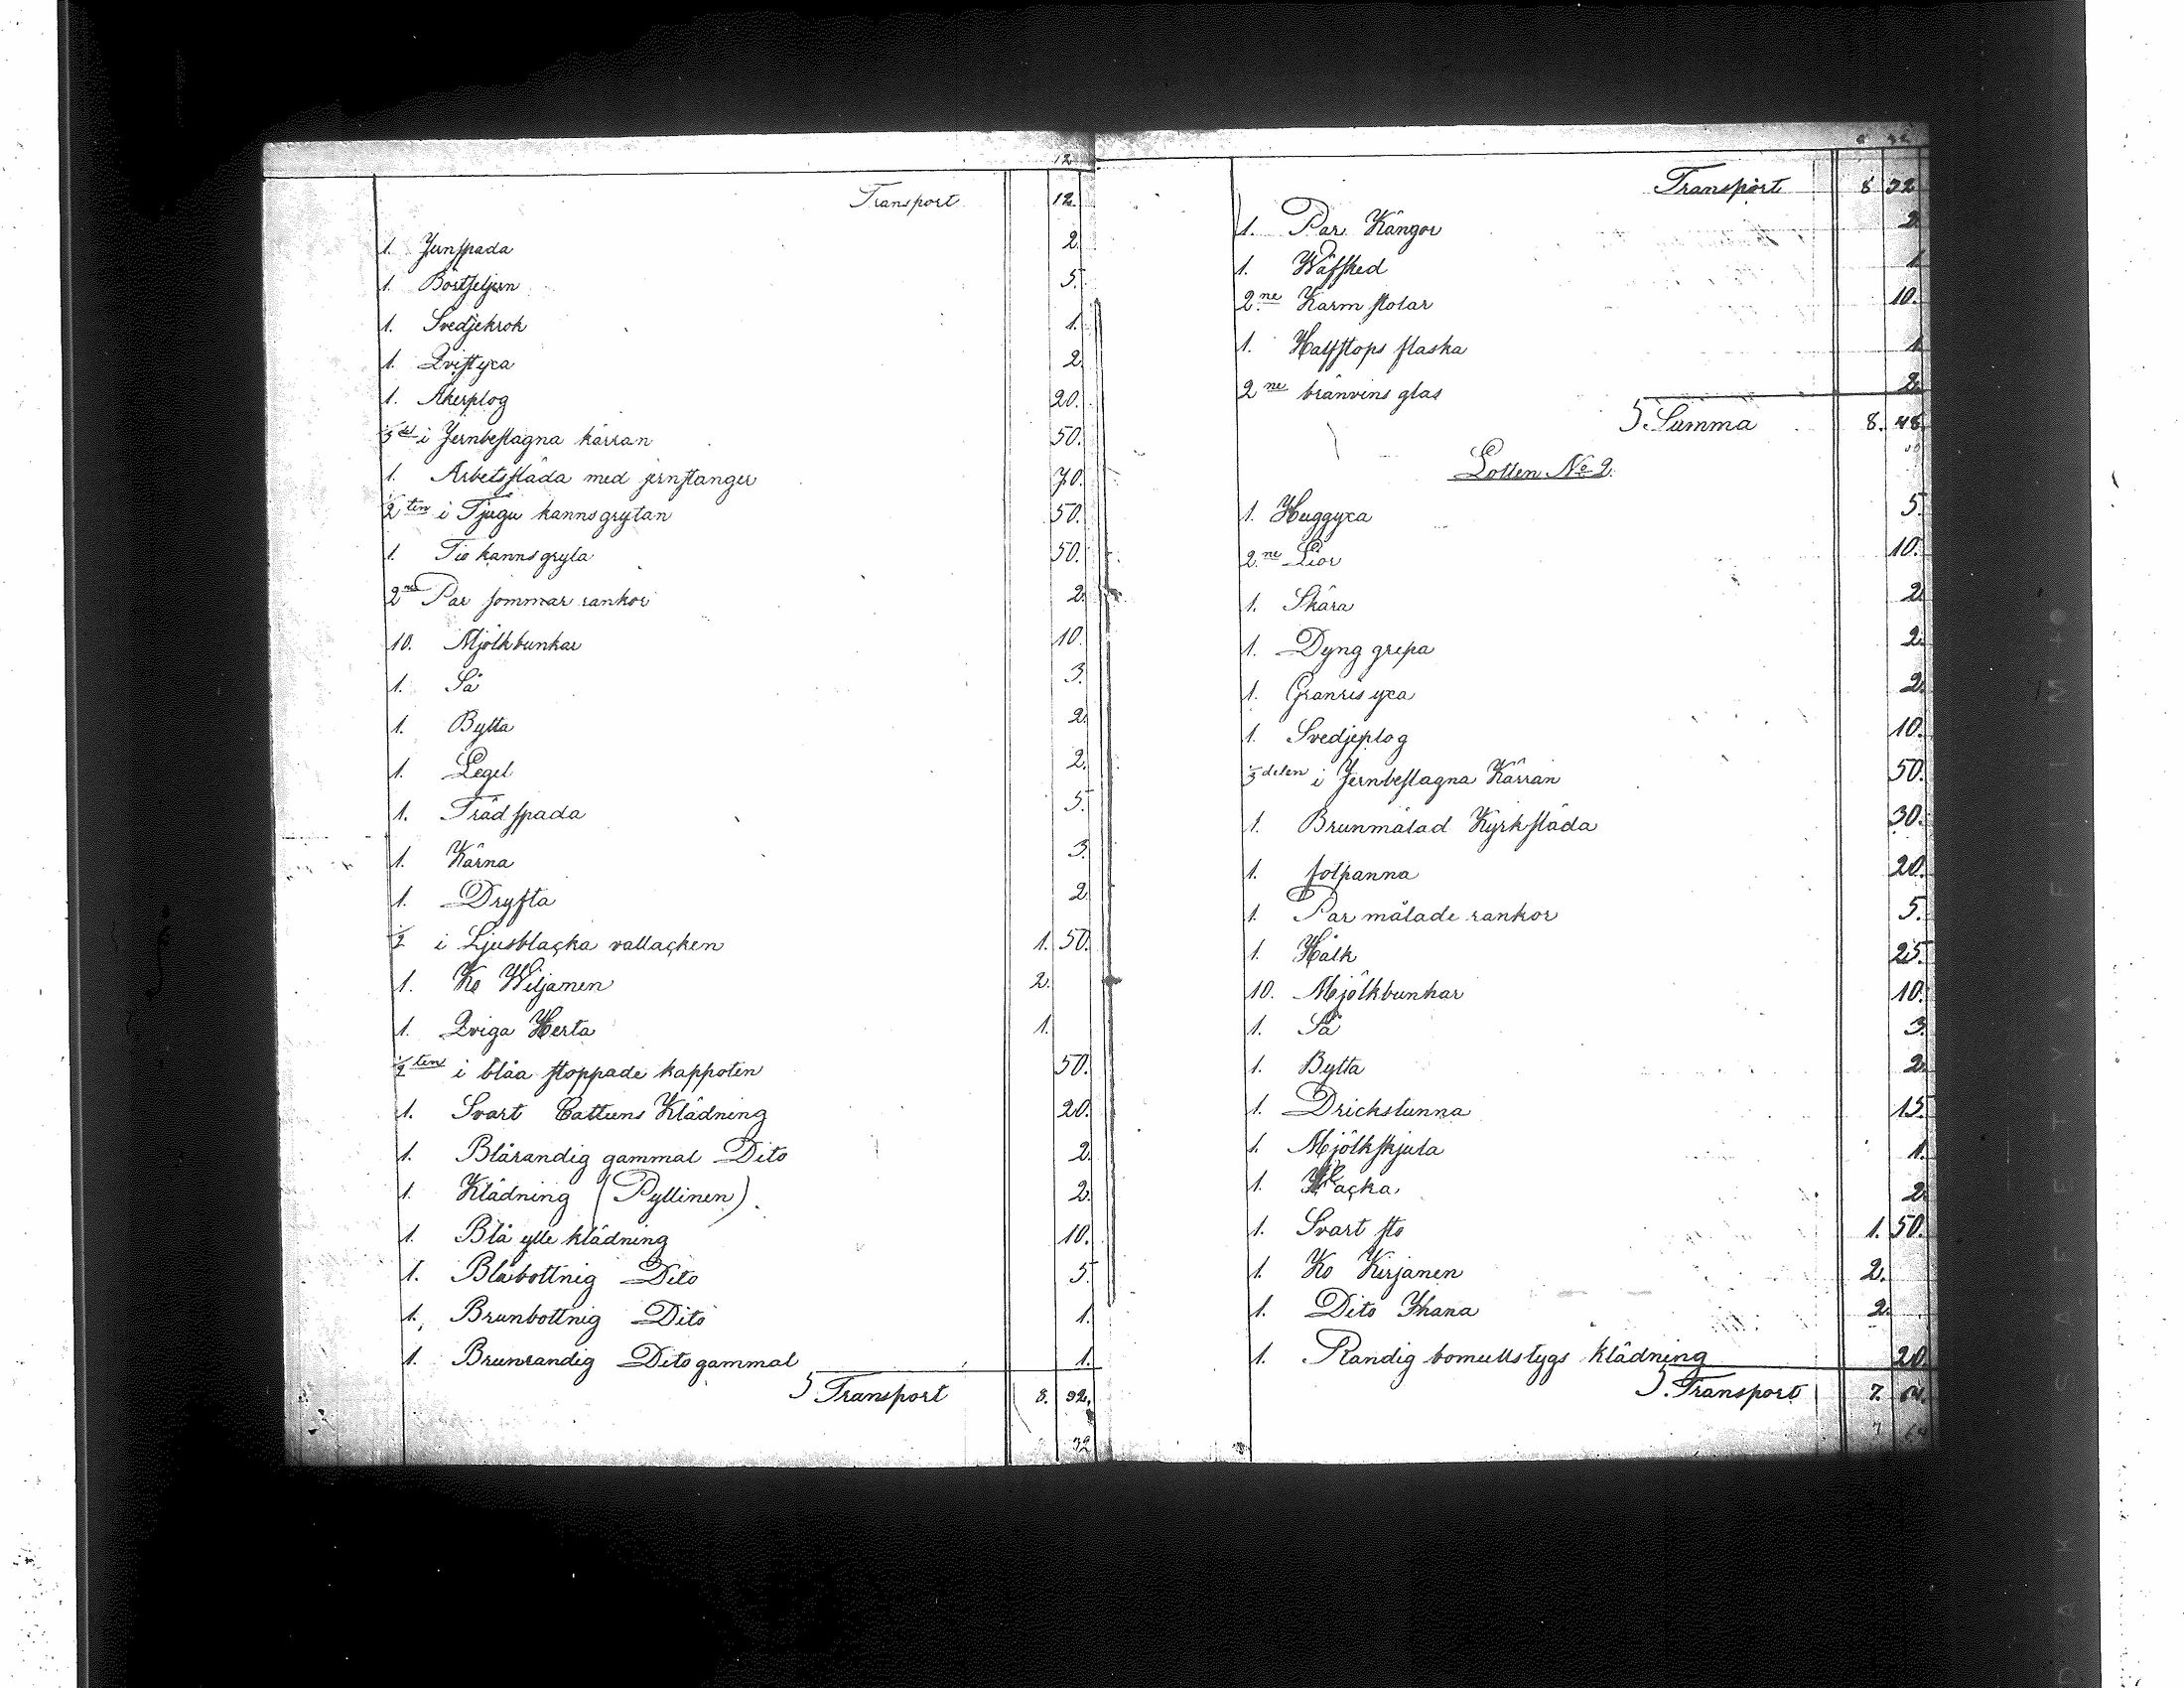 12
Transport 12.
1. Jernspada 2.
1. Böstseljern 5.
1. Svedjekrok 1.
1. Qvistyxa 2.
1. Åkerplog 20.
1/3 del i Jernbeslagna kärran 50.
1. Arbetssläda med jernstänger 70.
1/2 ten i Tjugu kannsgrytan 50.
1. Tio kannsgryta 50.
2ne Par sommar rankor 2.
10. Mjölkbunkar 10.
1. Så 3.
1. Bytta 2.
1. Legel 2.
1. Trädspada 5.
1. Kärna 3.
1. Dryfta 2.
1/2 i Ljusblacka vallacken 1. 50.
1. Ko Wiljamen 2.
1. Qviga Herta 1.
1/2 ten i blåa stoppade kappoten 50.
1. Svart Cattuns Klädning 20.
1. Blårandig gammal Dito 2.
1. Klädning (Pyllinen). 2.
1. Blå ylle klädning 10.
1. Blåbottnig Dito 5.
1. Brunbottnig Dito 1.
1. Brunrandig Dito gammal 1.
Transport 8. 32.
32
8 32
Transport 8 32
1. Par Kängor 2.
1. Wäfsked 1
2ne Karmstolar 10.
1. Halfstops flaska 1
2ne bränvins glas 2.
Summa 8. 48.
Lotten No 2.
1. Huggyxa 5.
2ne Lior 10.
1. Skära 2.
1. Dynggrepa 2.
1. Granrisyxa 2.
1. Svedjeplog 10.
1/3 delen i Jernbeslagna Kärran 50.
1. Brunmålad Kyrksläda 30.
1. fotpanna 20.
1. Par målade rankor 5.
1. Hålk 25.
10. Mjölkbunkar 10.
1. Så 3.
1. Bytta 2.
1. Drickstunna 15.
1. Mjölkskjula 1.
1. Wacka 2.
1. Svart sto 1. 50.
1. Ko Kirjanen 2.
1. Dito Ihana 2.
1. Randig bomullstygs klädning 20
Transport 7. 64.
7 64